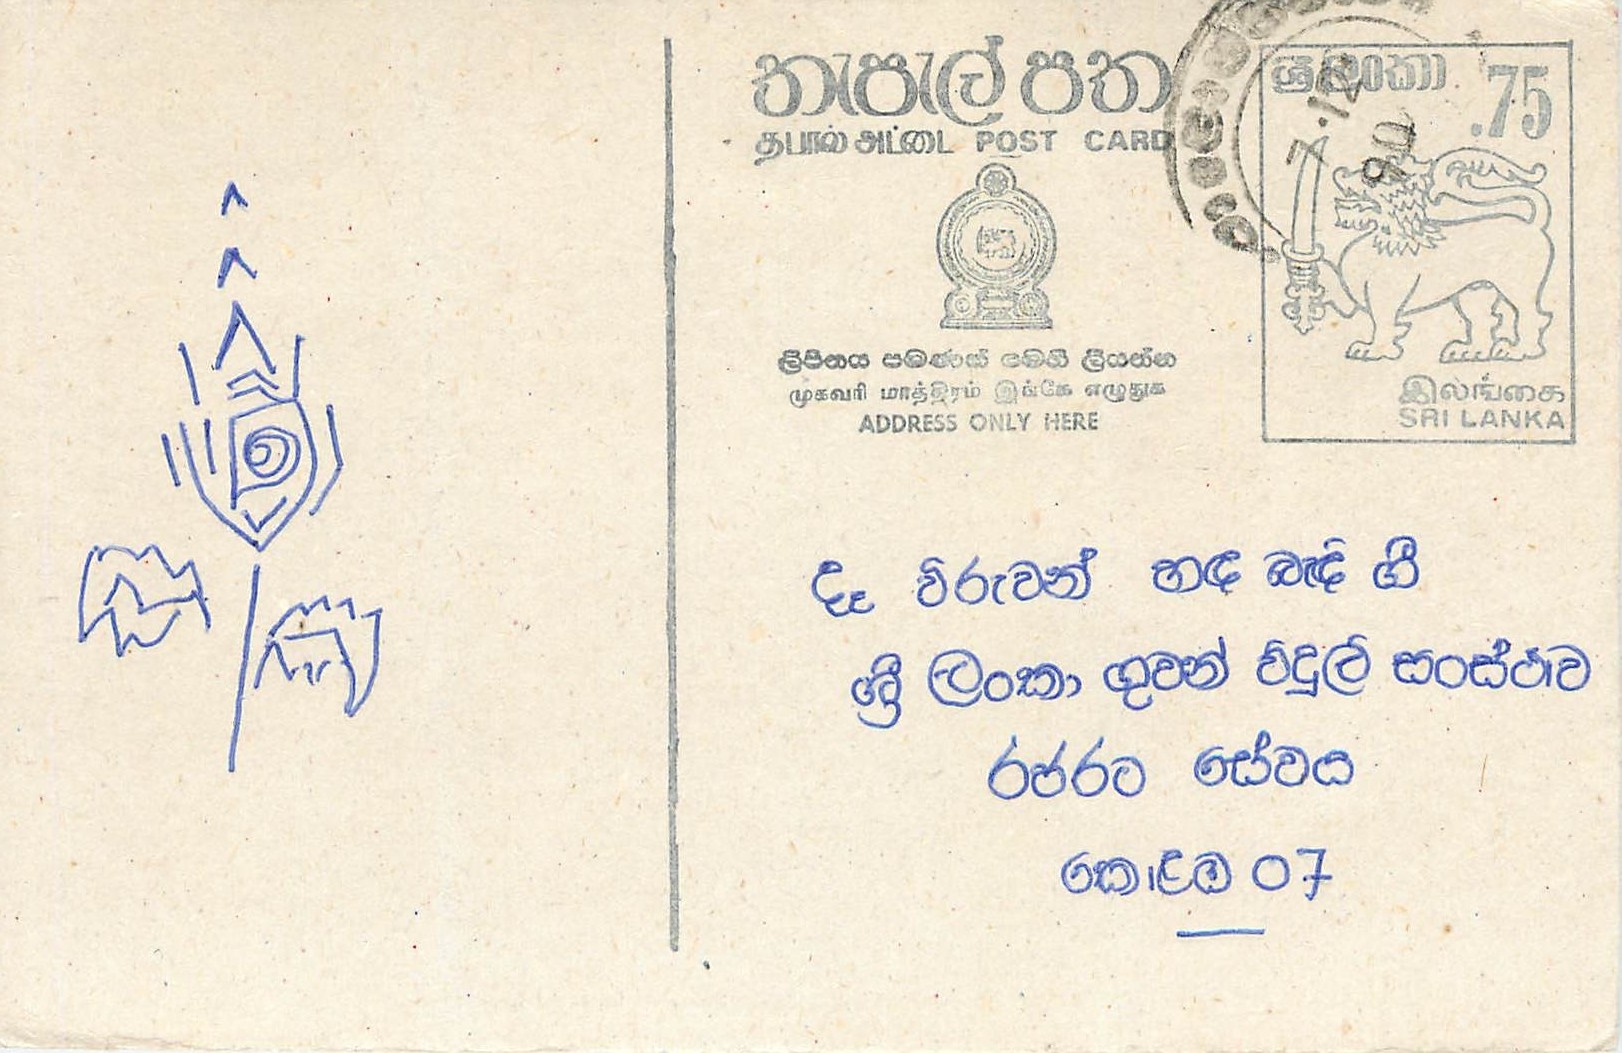 තැපැල් පත
தபால் அட்டை POST CARD
ශ්‍රී ලංකා
.75
ලිපිනය පමණක් මෙහි ලියන්න
முகவரி மாத்திரம் இங்கே எழுதுக
ADDRESS ONLY HERE
இலங்கை
SRI LANKA
විරුවන් හඳ බැඳි ගී
ශ්‍රී ලංකා ගුවන් විදුලි සංස්ථාව
රජරට සේවය
කොළඹ 07